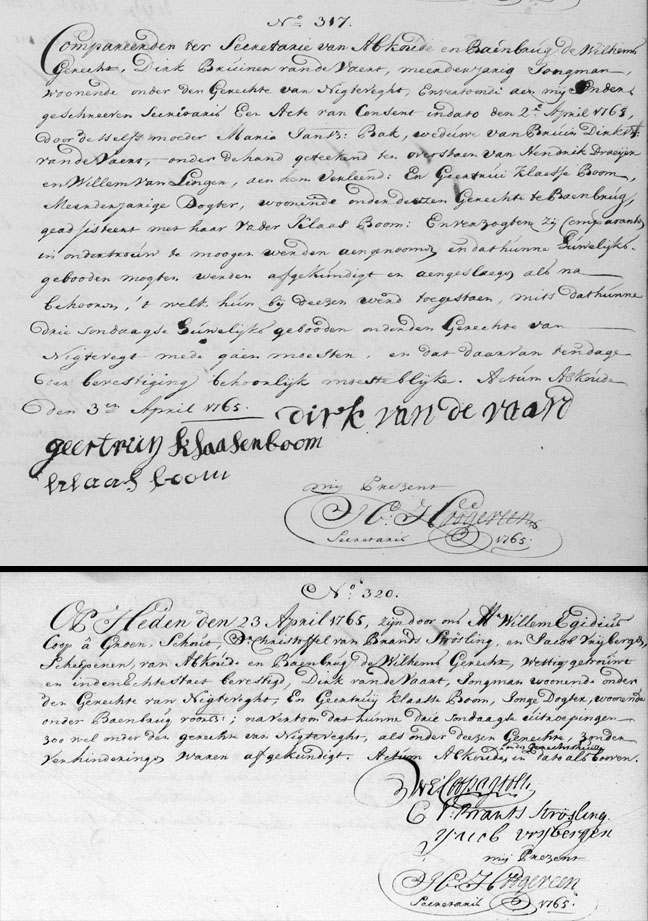 No. 317.
Compareerden ter Secretarie van Abkoude en Baenbrug de Wilhems
Gerecht, Dirk Bruinen van de Vaert, meerderjarig Jongman,
woonende onder den Gerechte van Nigtereght, En vertoondi aen mij Onder
geschreeven Secretaris Een Acte van Consent in dato den 2e April 1765
door desselfs moeder Maria Jants: Bak, weduwe van Bruin Dirksz
van de Vaert, onder de hand geteekend ten overstaen van Hendrik Draeijer
en Willem van Lingen, aen hem verleend: En Geertrui Klaesse Boom,
Meerderjarige Dogter, woonende onder deezen Gerechte te Baenbrug,
geadsisteert met haar vader Klaas Boom: En verzogten zij Comparanten
in ondertrouw te moogen werden aengenoomen en dat hunne Huwelijks-
gebooden mogten werden afgekundigt en aengeslaegen als na
behooren, 't welk hun bij deezen werd toegestaen, mits dat hunne
drie Sondaagse Huwelijks gebooden onder den Gerechte van
Nigtevegt mede gaen moesten, en dat daarvan ten dage
der bevestiging behoorlijk moeste blijke. Actum Abkoude
den 3en April 1765.
dirk van de vaard
geertruij klaasenboom
klaas boom
mij Prezent
Secretaris 1765.
No. 320.
Op Heden den 23 April 1765, zijn door ons Mr. Willem Egidius
Coop â Groen, Schout, Dr. Christoffel van Brants Strösling, en Jacob Vrijbergen,
Scheepenen, van Abkoude en Baenbrug de Wilhems Gerecht, Wettig getrouwt
en in den Echte Staet bevestigd, Dirk van de Vaart, Jongman woonende onder
den Gerechte van Nigtereght, En Geertruij Klaasse Boom, Jonge Dogter, woonende
onder Baenbrug voorn:; na vertom dat hunne drie Sondaagse uitroepingen
zoo wel onder den gerechte van Nigtereght, als onder deezen Gerechte, zonder
verhinderinge waren afgekundigt. Actum Abkoude, en dato als boven.
C V: Brants Strösling.
Jacob vrybergen
mij Prezent
Secretaris 1765.